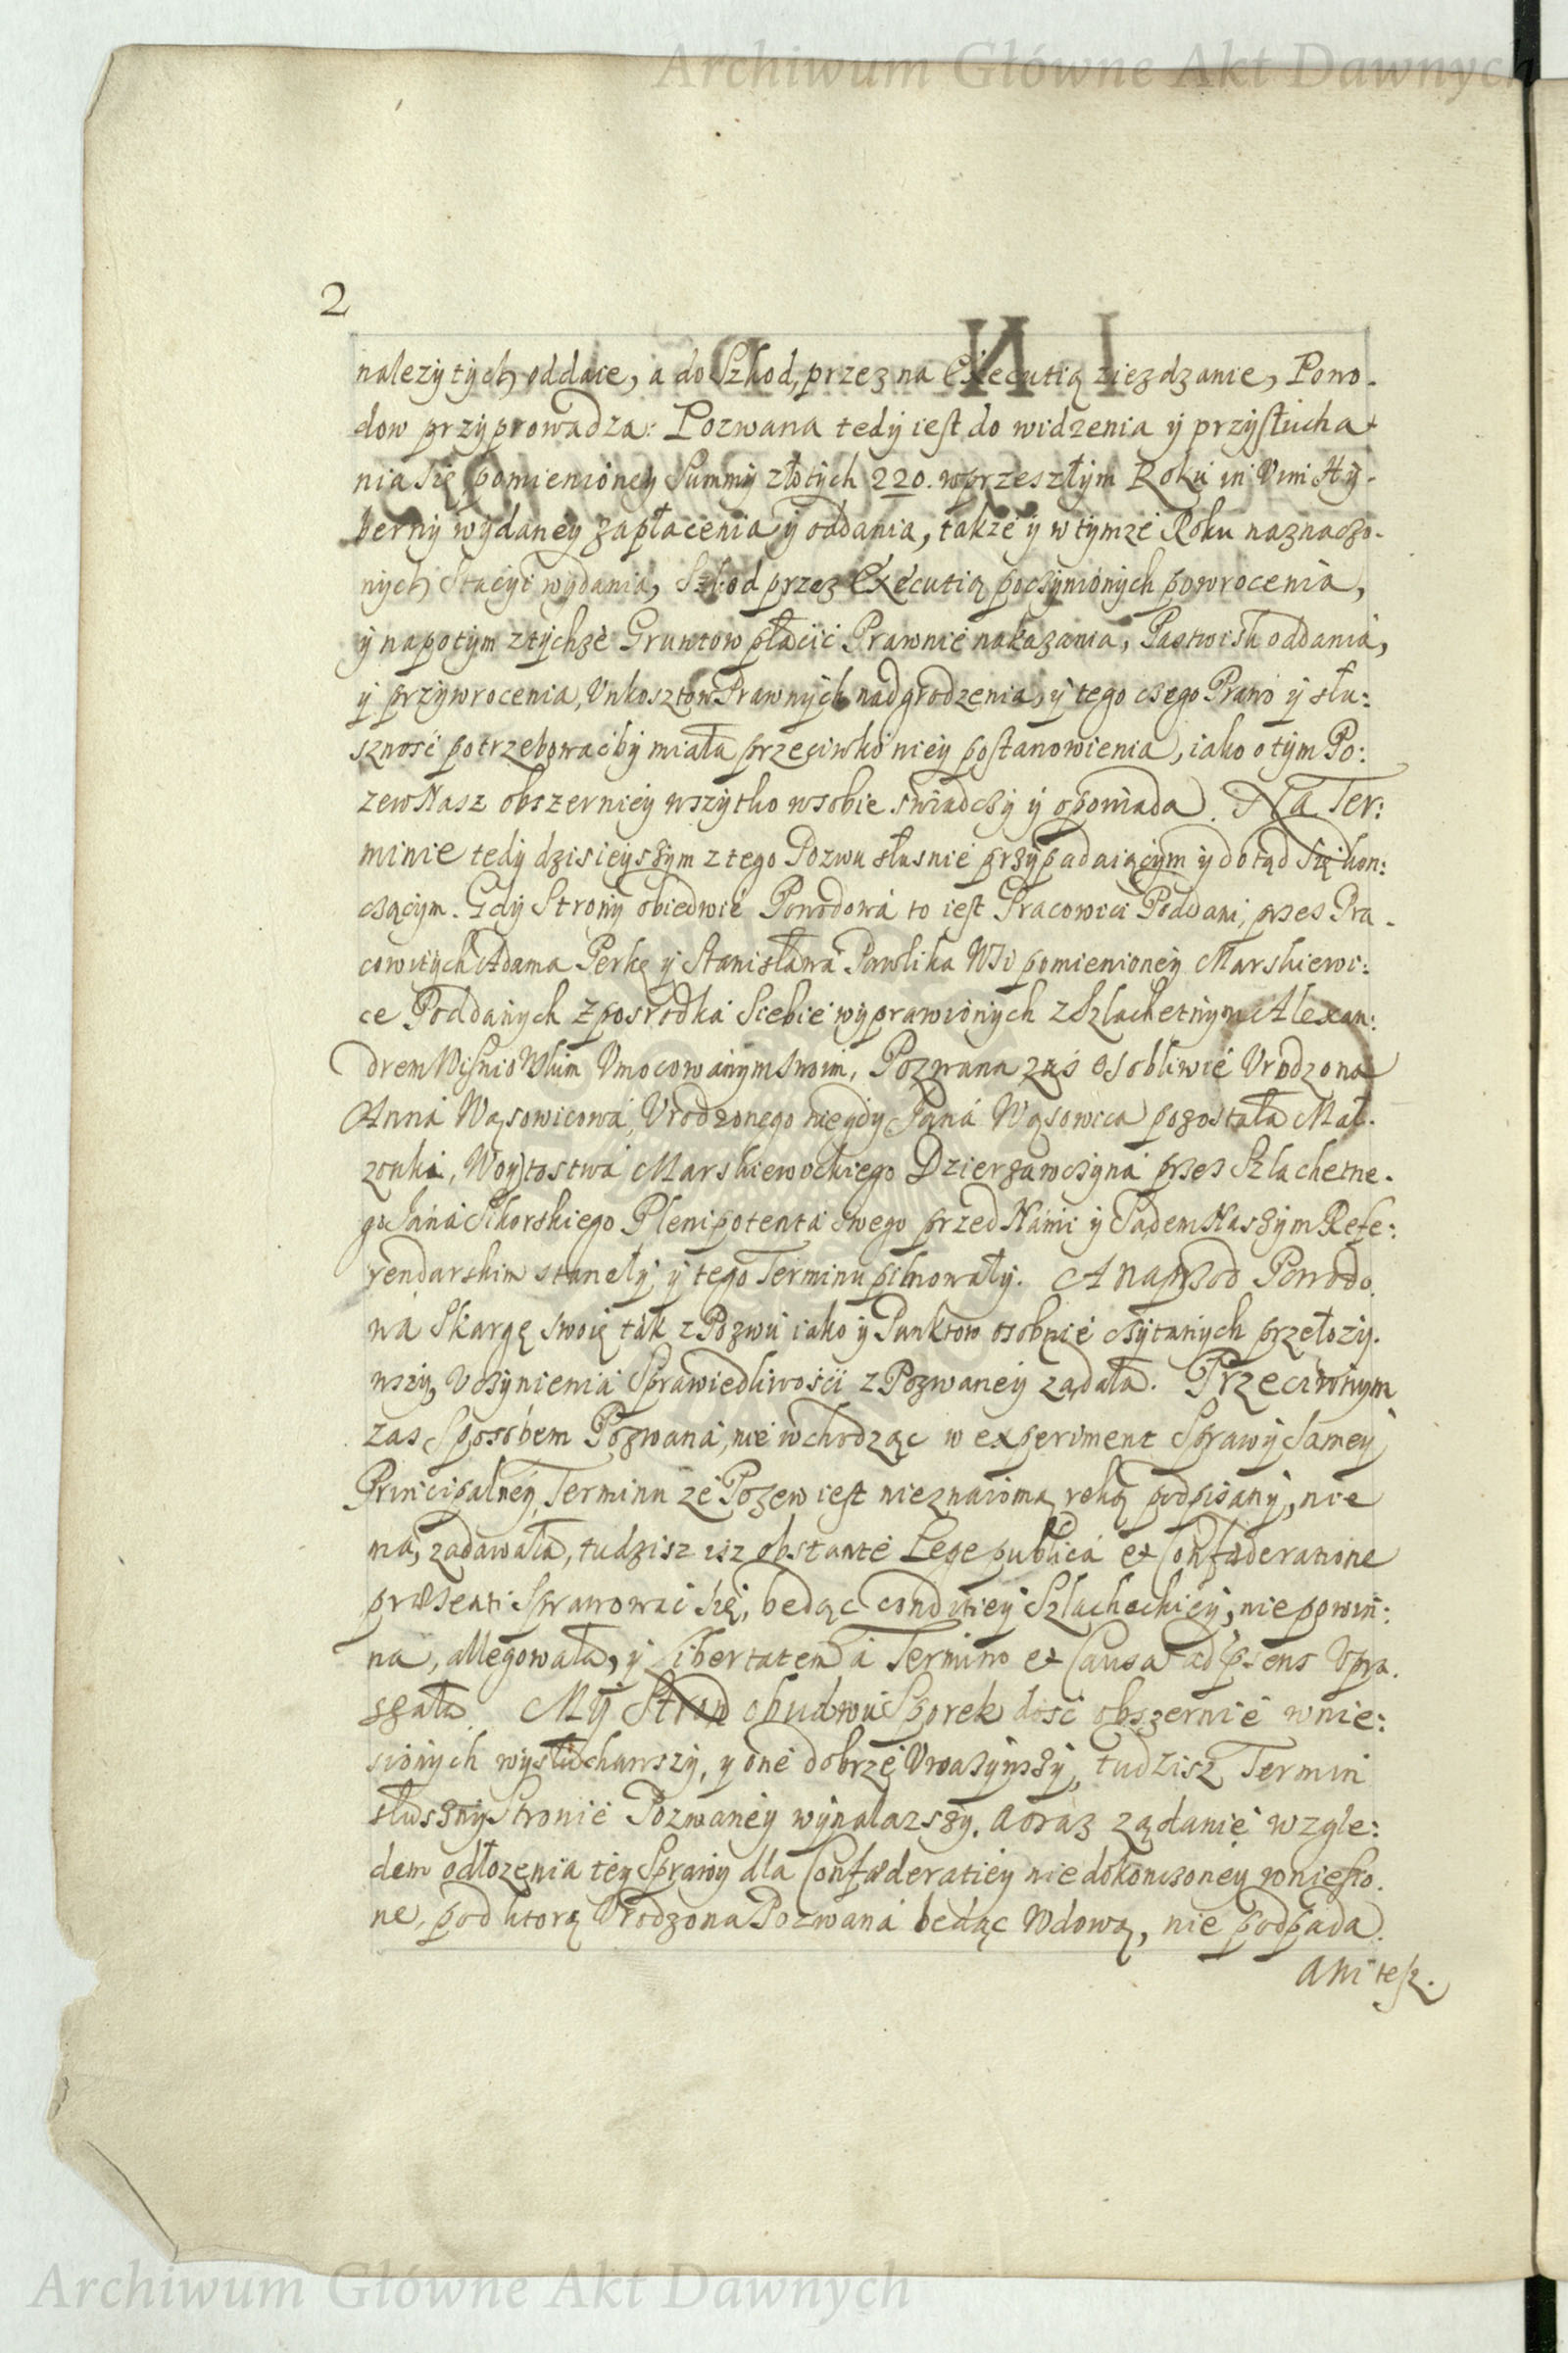 Archiwum Główne Akt Dawnych
2
należytych oddaie, a do Szkod, przez na Executią zieżdzanie, Powo-
dow przyprowadza: Pozwana tedy iest do widzenia y przysłucha-
nia się pomienioney Summy złotych 220. wprzeszłym Roku in Vim Hy-
berny wydaney zapłacenia y oddania, także y w tymże Roku naznaczo-
nych Stacyi wydania, Szkod przez Executią poczynionych powrocenia,
y napotym ztychże Gruntow płacić Prawnie nakazania, Pastwisk oddania,
y przywrocenia, Vnkosztow Prawnych nadgrodzenia, y tego czego Prawo y słu:
szność potrzebować by miała przeciwko niey postanowienia, iako o tym Po:
zew Nasz obszerniey wszytko w sobie świadczy y opowiada. Na Ter:
minie tedy dzisieyszym z tego Pozwu słusnie przypadaiącym y dotąd Się kon:
czącym. Gdy Strony obiedwie Powodowa to iest Pracowici Poddani, przes Pra-
cowitych Adama Perkę y Stanisława Pawlika WSi pomienioney Markiewi:
ce Poddanych z posrodka Siebie wyprawionych z Szlachetnym Alexan:
drem Wiśniowskim Vmocowanym swoim, Pozwana zaś osobliwie Vrodzona
Anna Wąsowicowa, Vrodzonego niegdy Pana Wąsowica pozostała Mał-
zonka, Woytostwa Markiewockiego Dzierzawczyna przes Szlachetne-
go Jana Sikorskiego Plenipotenta swego przed Nami y Sądem Naszym Refe:
rendarskim stanęły y tego Terminu pilnowały. A naprzod Powodo-
wa Skargę swoię tak z Pozwu iako y Punktow osobnie czytanych przełozy-
wszy, Vczynienia Sprawiedliwości z Pozwaney ządała. Przeciwnym
zas Sposobem Pozwana, nie wchodząc w experiment Sprawy Samey
Principalney, Terminu że Pozew iest nieznaioma ręką podpisany, nie
ma, zadawała, tudzisz isz obstante Lege publica et Confæderatione
præsenti Sprawować się, będąc conditiey Szlacheckiey, nie powin:
na, allegowała, y Libertatem a Termino et Causa ad psens Vpra-
szała. My Stron obudwu Sporek dość obszernie wnie:
sionych wysłuchawszy, y one dobrze Vwazywszy, tudzisz Termin
słuszny Stronie Pozwaney wynalazszy, a oraz ządanie wzglę:
dem odłozenia tey Sprawy dla Confæderatiey niedokonczoney wniesio-
ne, pod ktorą Vrodzona Pozwana będąc Wdową, nie podpada.
Ani tesz.
Archiwum Główne Akt Dawnych